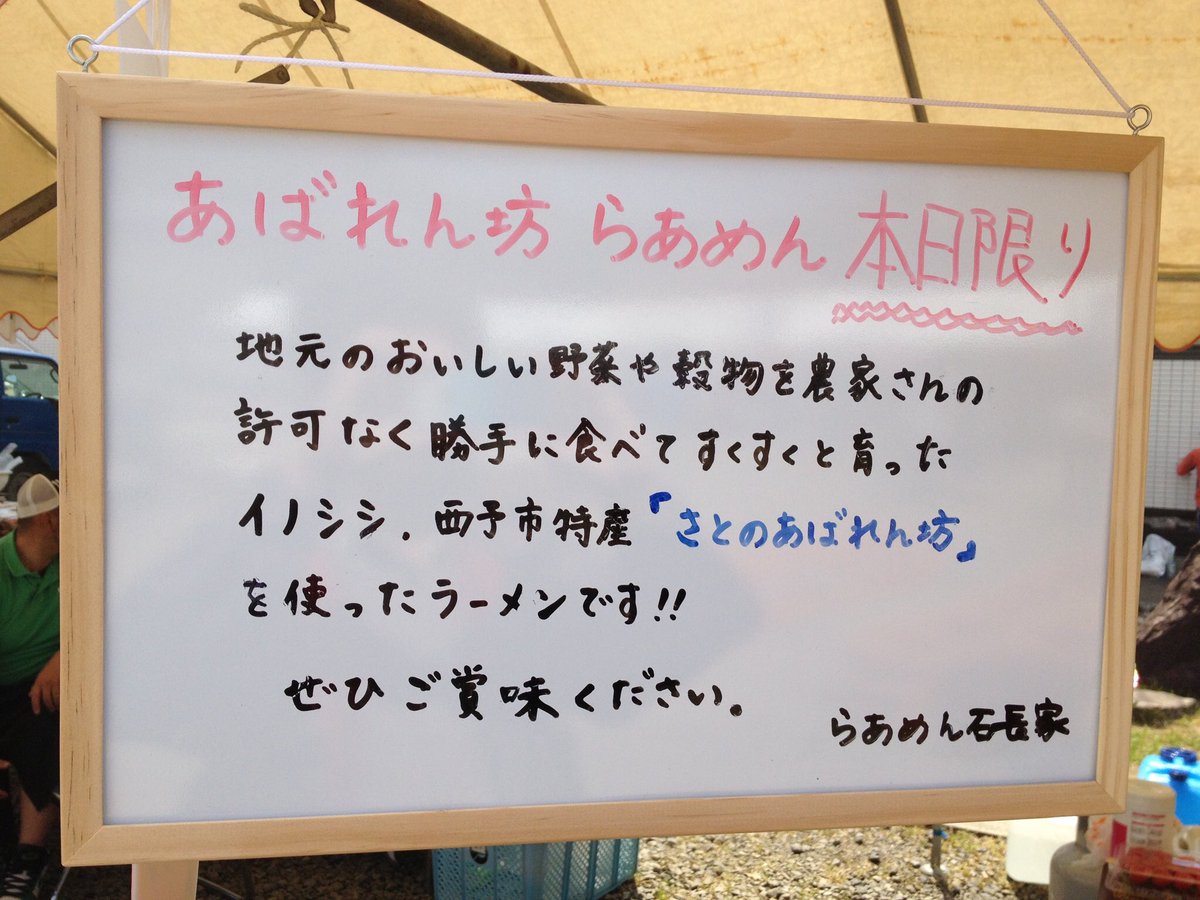 あばれん坊 らあめん 本日限り
地元のおいしい野菜や穀物を農家さんの
許可なく勝手に食べてすくすくと育った
イノシシ.西予市特産『さとのあばれん坊』
を使ったラーメンです!!
ぜひご賞味ください。
らあめん石長家